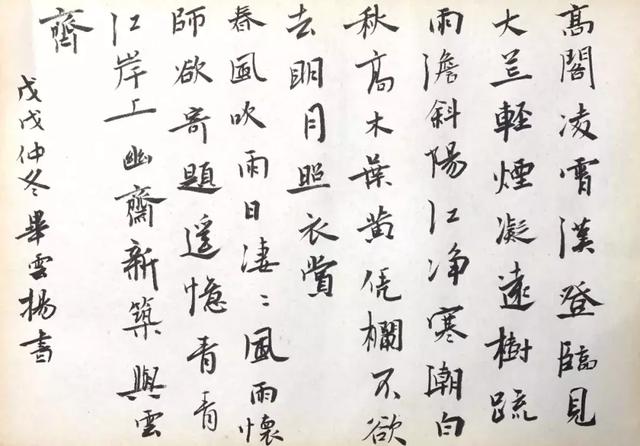 高閣凌霄漢登臨見
大荒輕煙凝遠樹疏
雨澹斜陽江净寒潮白
秋高木葉黄凭欄不欲
去明月照衣裳
春風吹雨日凄〻風雨懷
師欲寄題遥憶青青
江岸上幽齋新築與雲
齊
戊戌仲冬畢雲楊書